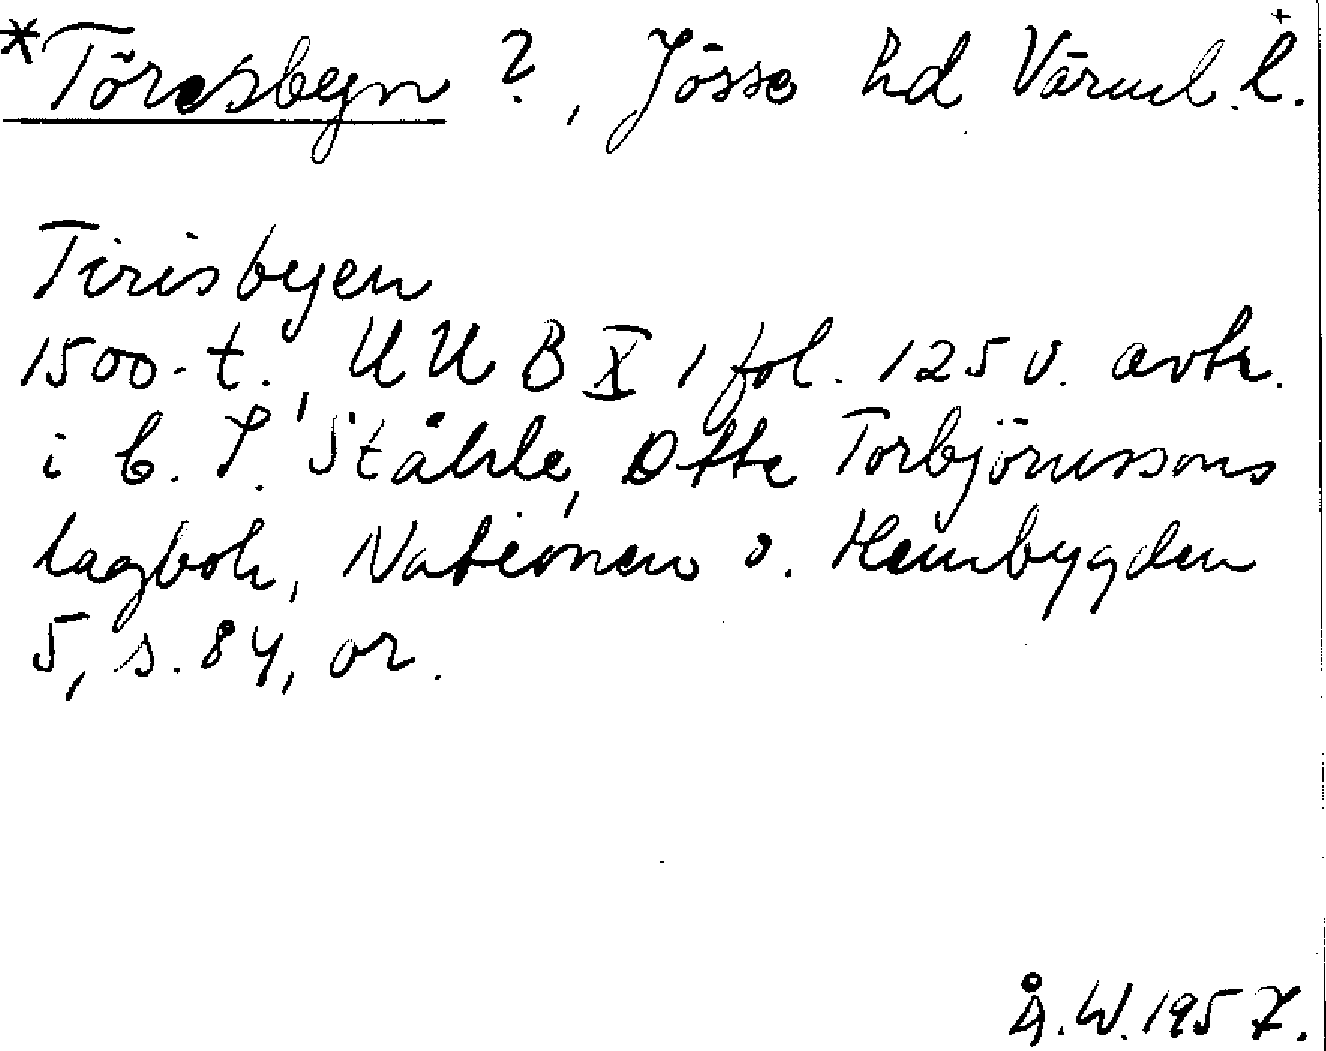 *Töresbyn ?, Jösse hd Värml. l.
Tirisbyen
1500-t., UUB X 1 fol. 125 v. avtr.
i C. I. Ståhle, Ofte Torbjörnssons
lagbok, Nationen o. Hembygden
5, s. 84, or.
Å.W. 1957.